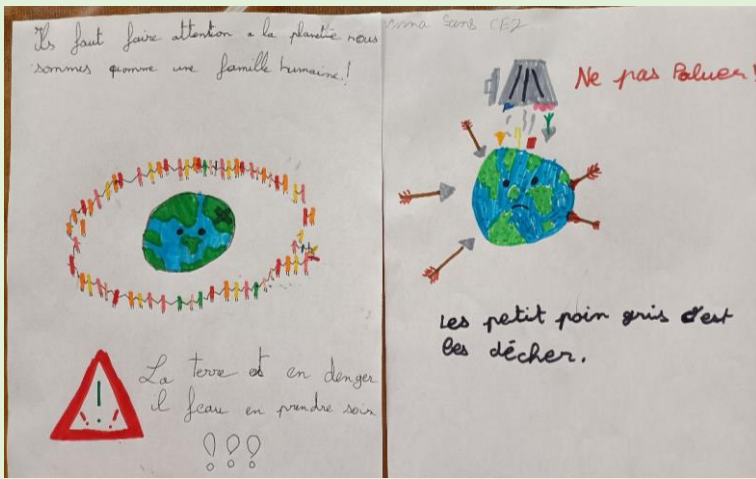 Ils faut faire attention a la planette nous
sommes comme une famille humaine!
La terre est en denger
il feau en prendre soin
!!!
Sans CE2
Ne pas Poluer!
Les petit poin gris c'est
les décher.